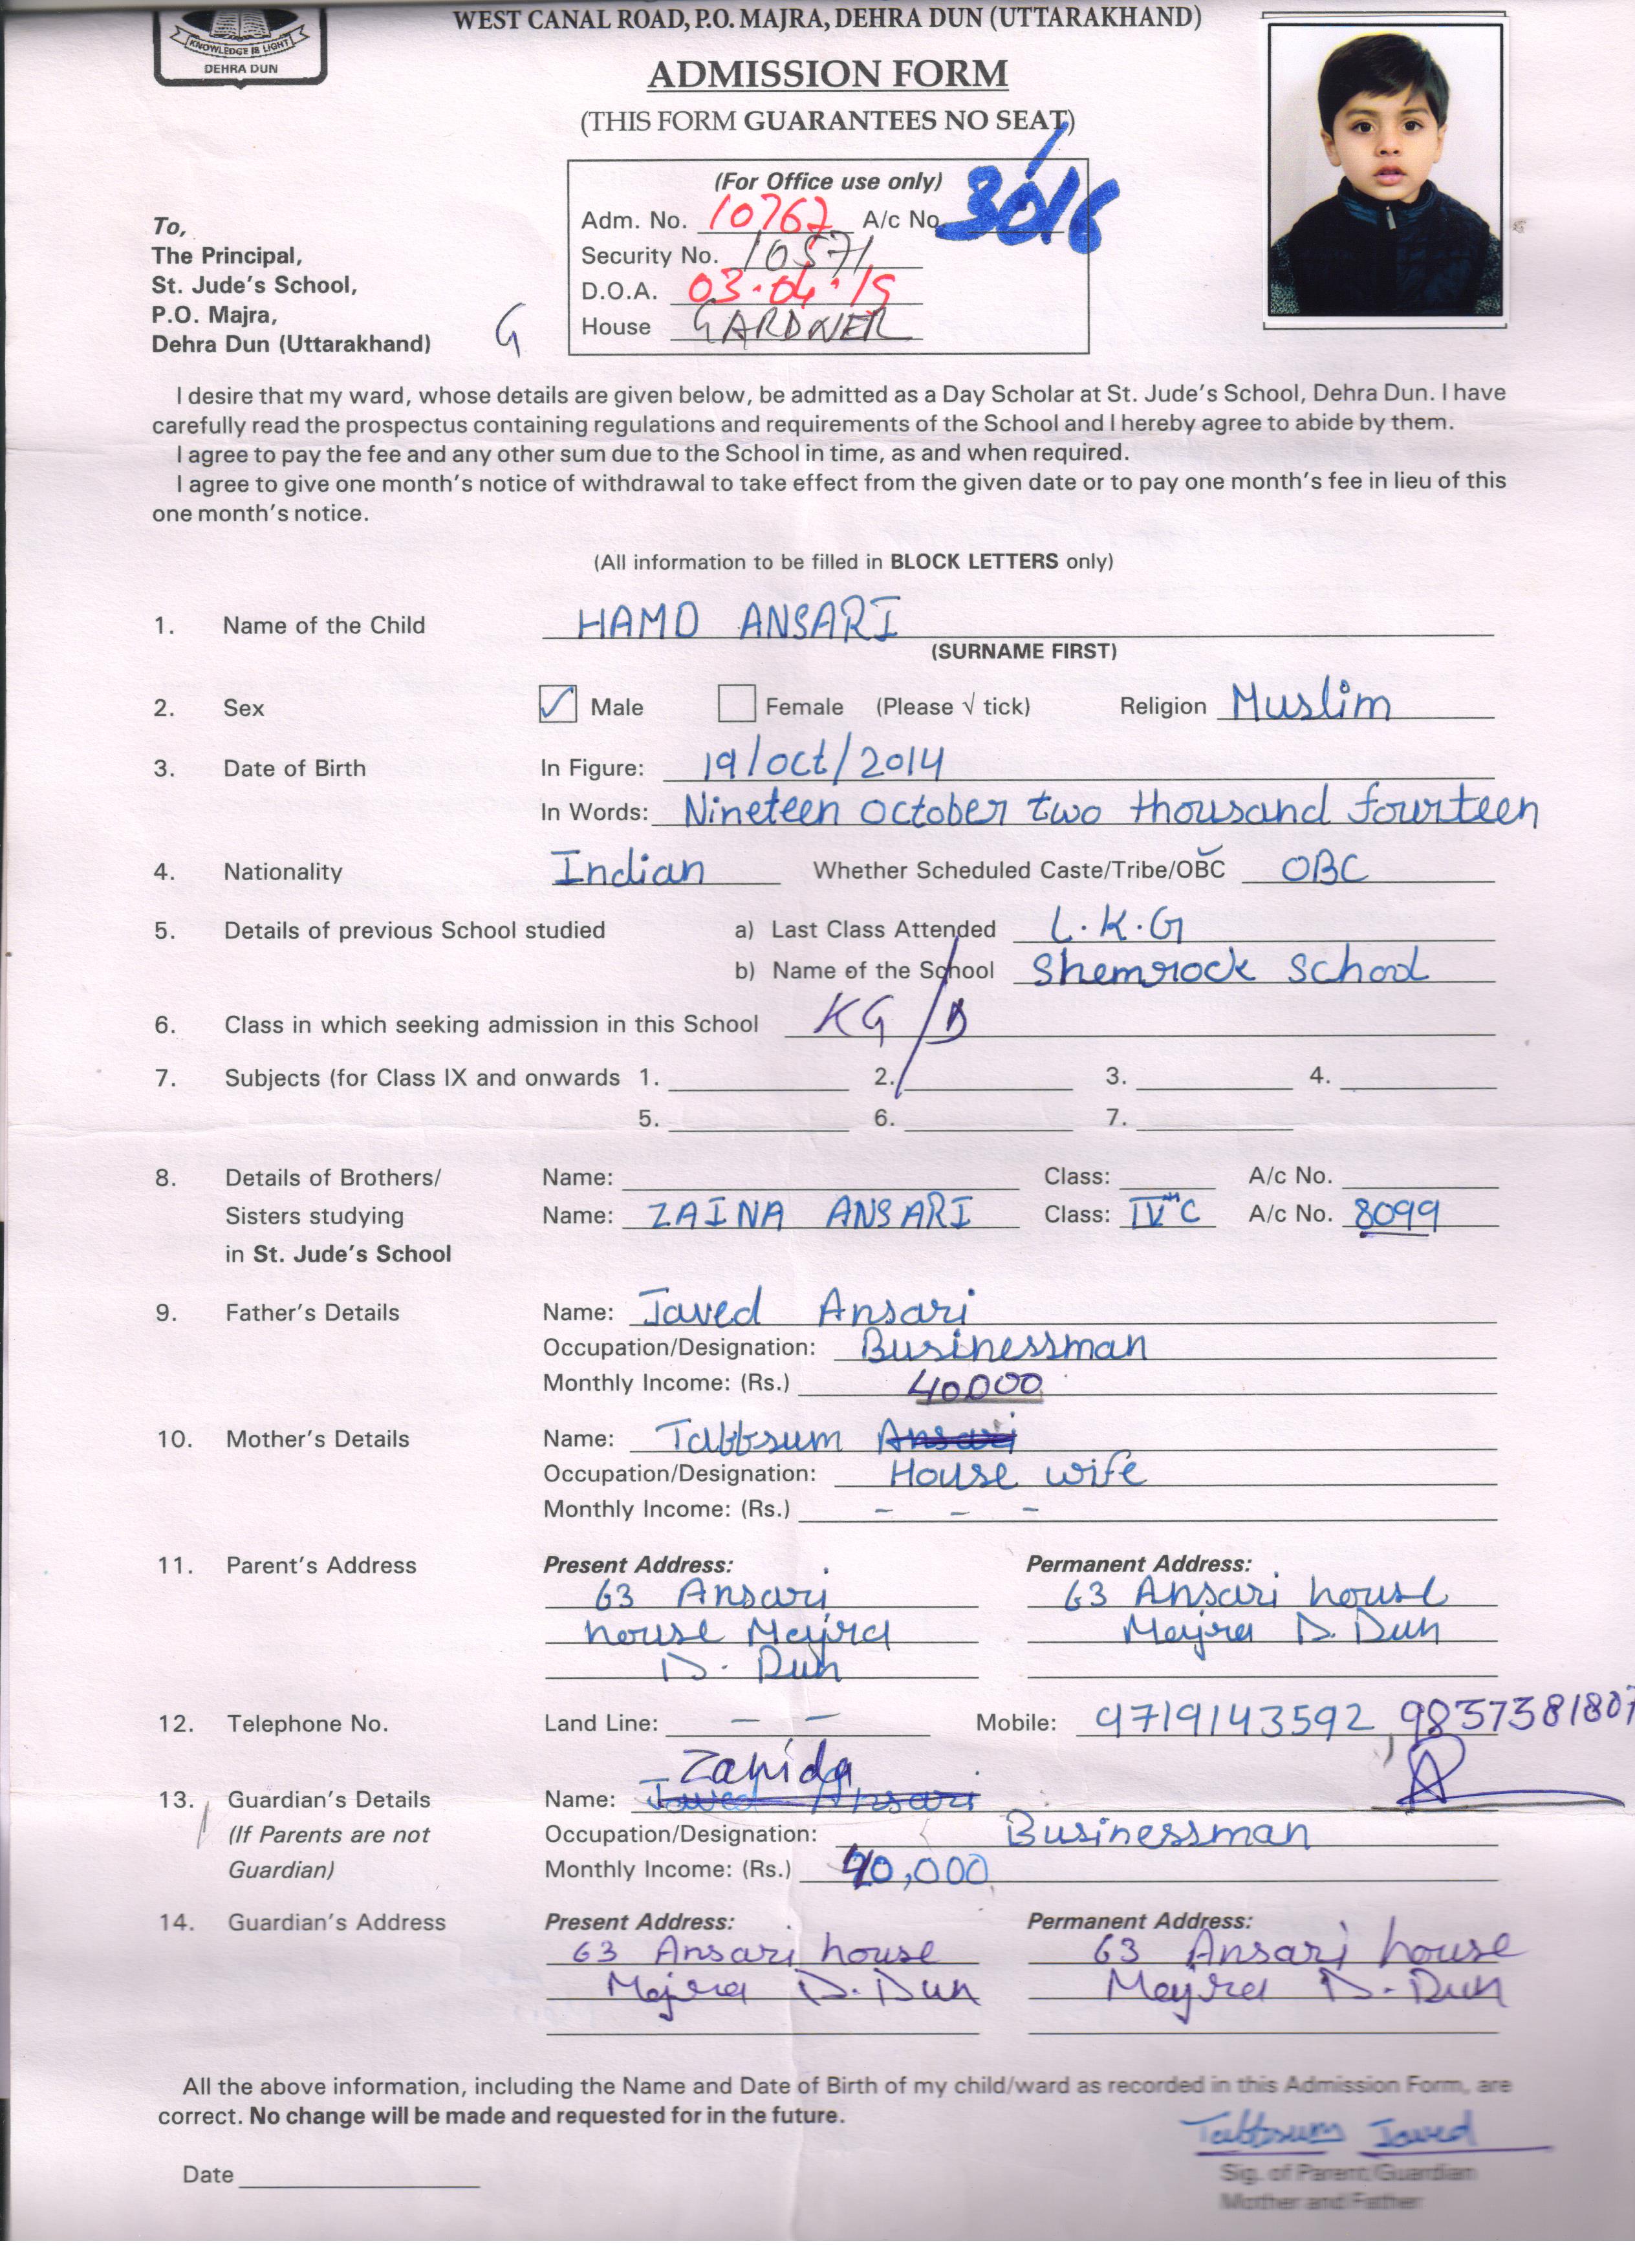 WEST CANAL ROAD, P.O. MAJRA, DEHRA DUN (UTTARAKHAND)
KNOWLEDGE IS LIGHT
DEHRA DUN
ADMISSION FORM
(THIS FORM GUARANTEES NO SEAT)
(For Office use only)
Adm. No. 10767 A/c No. 3016
Security No. 10571
D.O.A. 03.04.19
House GARDNER
To,
The Principal,
St. Jude's School,
P.O. Majra,
Dehra Dun (Uttarakhand) G
I desire that my ward, whose details are given below, be admitted as a Day Scholar at St. Jude's School, Dehra Dun. I have
carefully read the prospectus containing regulations and requirements of the School and I hereby agree to abide by them.
I agree to pay the fee and any other sum due to the School in time, as and when required.
I agree to give one month's notice of withdrawal to take effect from the given date or to pay one month's fee in lieu of this
one month's notice.
(All information to be filled in BLOCK LETTERS only)
1. Name of the Child HAMD ANSARI
(SURNAME FIRST)
2. Sex ✓ Male Female (Please √ tick) Religion Muslim
3. Date of Birth In Figure: 19/oct/2014
In Words: Nineteen october two thousand fourteen
4. Nationality Indian Whether Scheduled Caste/Tribe/OBC OBC
5. Details of previous School studied a) Last Class Attended L.K.G
b) Name of the School Shemrock school
6. Class in which seeking admission in this School KG/B
7. Subjects (for Class IX and onwards 1. 2. 3. 4.
5. 6. 7.
8. Details of Brothers/ Name: Class: A/c No.
Sisters studying Name: ZAINA ANSARI Class: IVth C A/c No. 8099
in St. Jude's School
9. Father's Details Name: Javed Ansari
Occupation/Designation: Businessman
Monthly Income: (Rs.) 40000
10. Mother's Details Name: Tabbsum Ansari
Occupation/Designation: House wife
Monthly Income: (Rs.) - - -
11. Parent's Address Present Address: Permanent Address:
63 Ansari 63 Ansari house
house Majra Majra D. Dun
D. Dun
12. Telephone No. Land Line: - - Mobile: 9719143592 9837381807
Zahida
13. Guardian's Details Name: Javed Ansari
(If Parents are not Occupation/Designation: Businessman
Guardian) Monthly Income: (Rs.) 40,000
14. Guardian's Address Present Address: Permanent Address:
63 Ansari house 63 Ansari house
Majra D. Dun Majra D. Dun
All the above information, including the Name and Date of Birth of my child/ward as recorded in this Admission Form, are
correct. No change will be made and requested for in the future.
Tabbsum Javed
Date Sig. of Parent/Guardian
Mother and Father